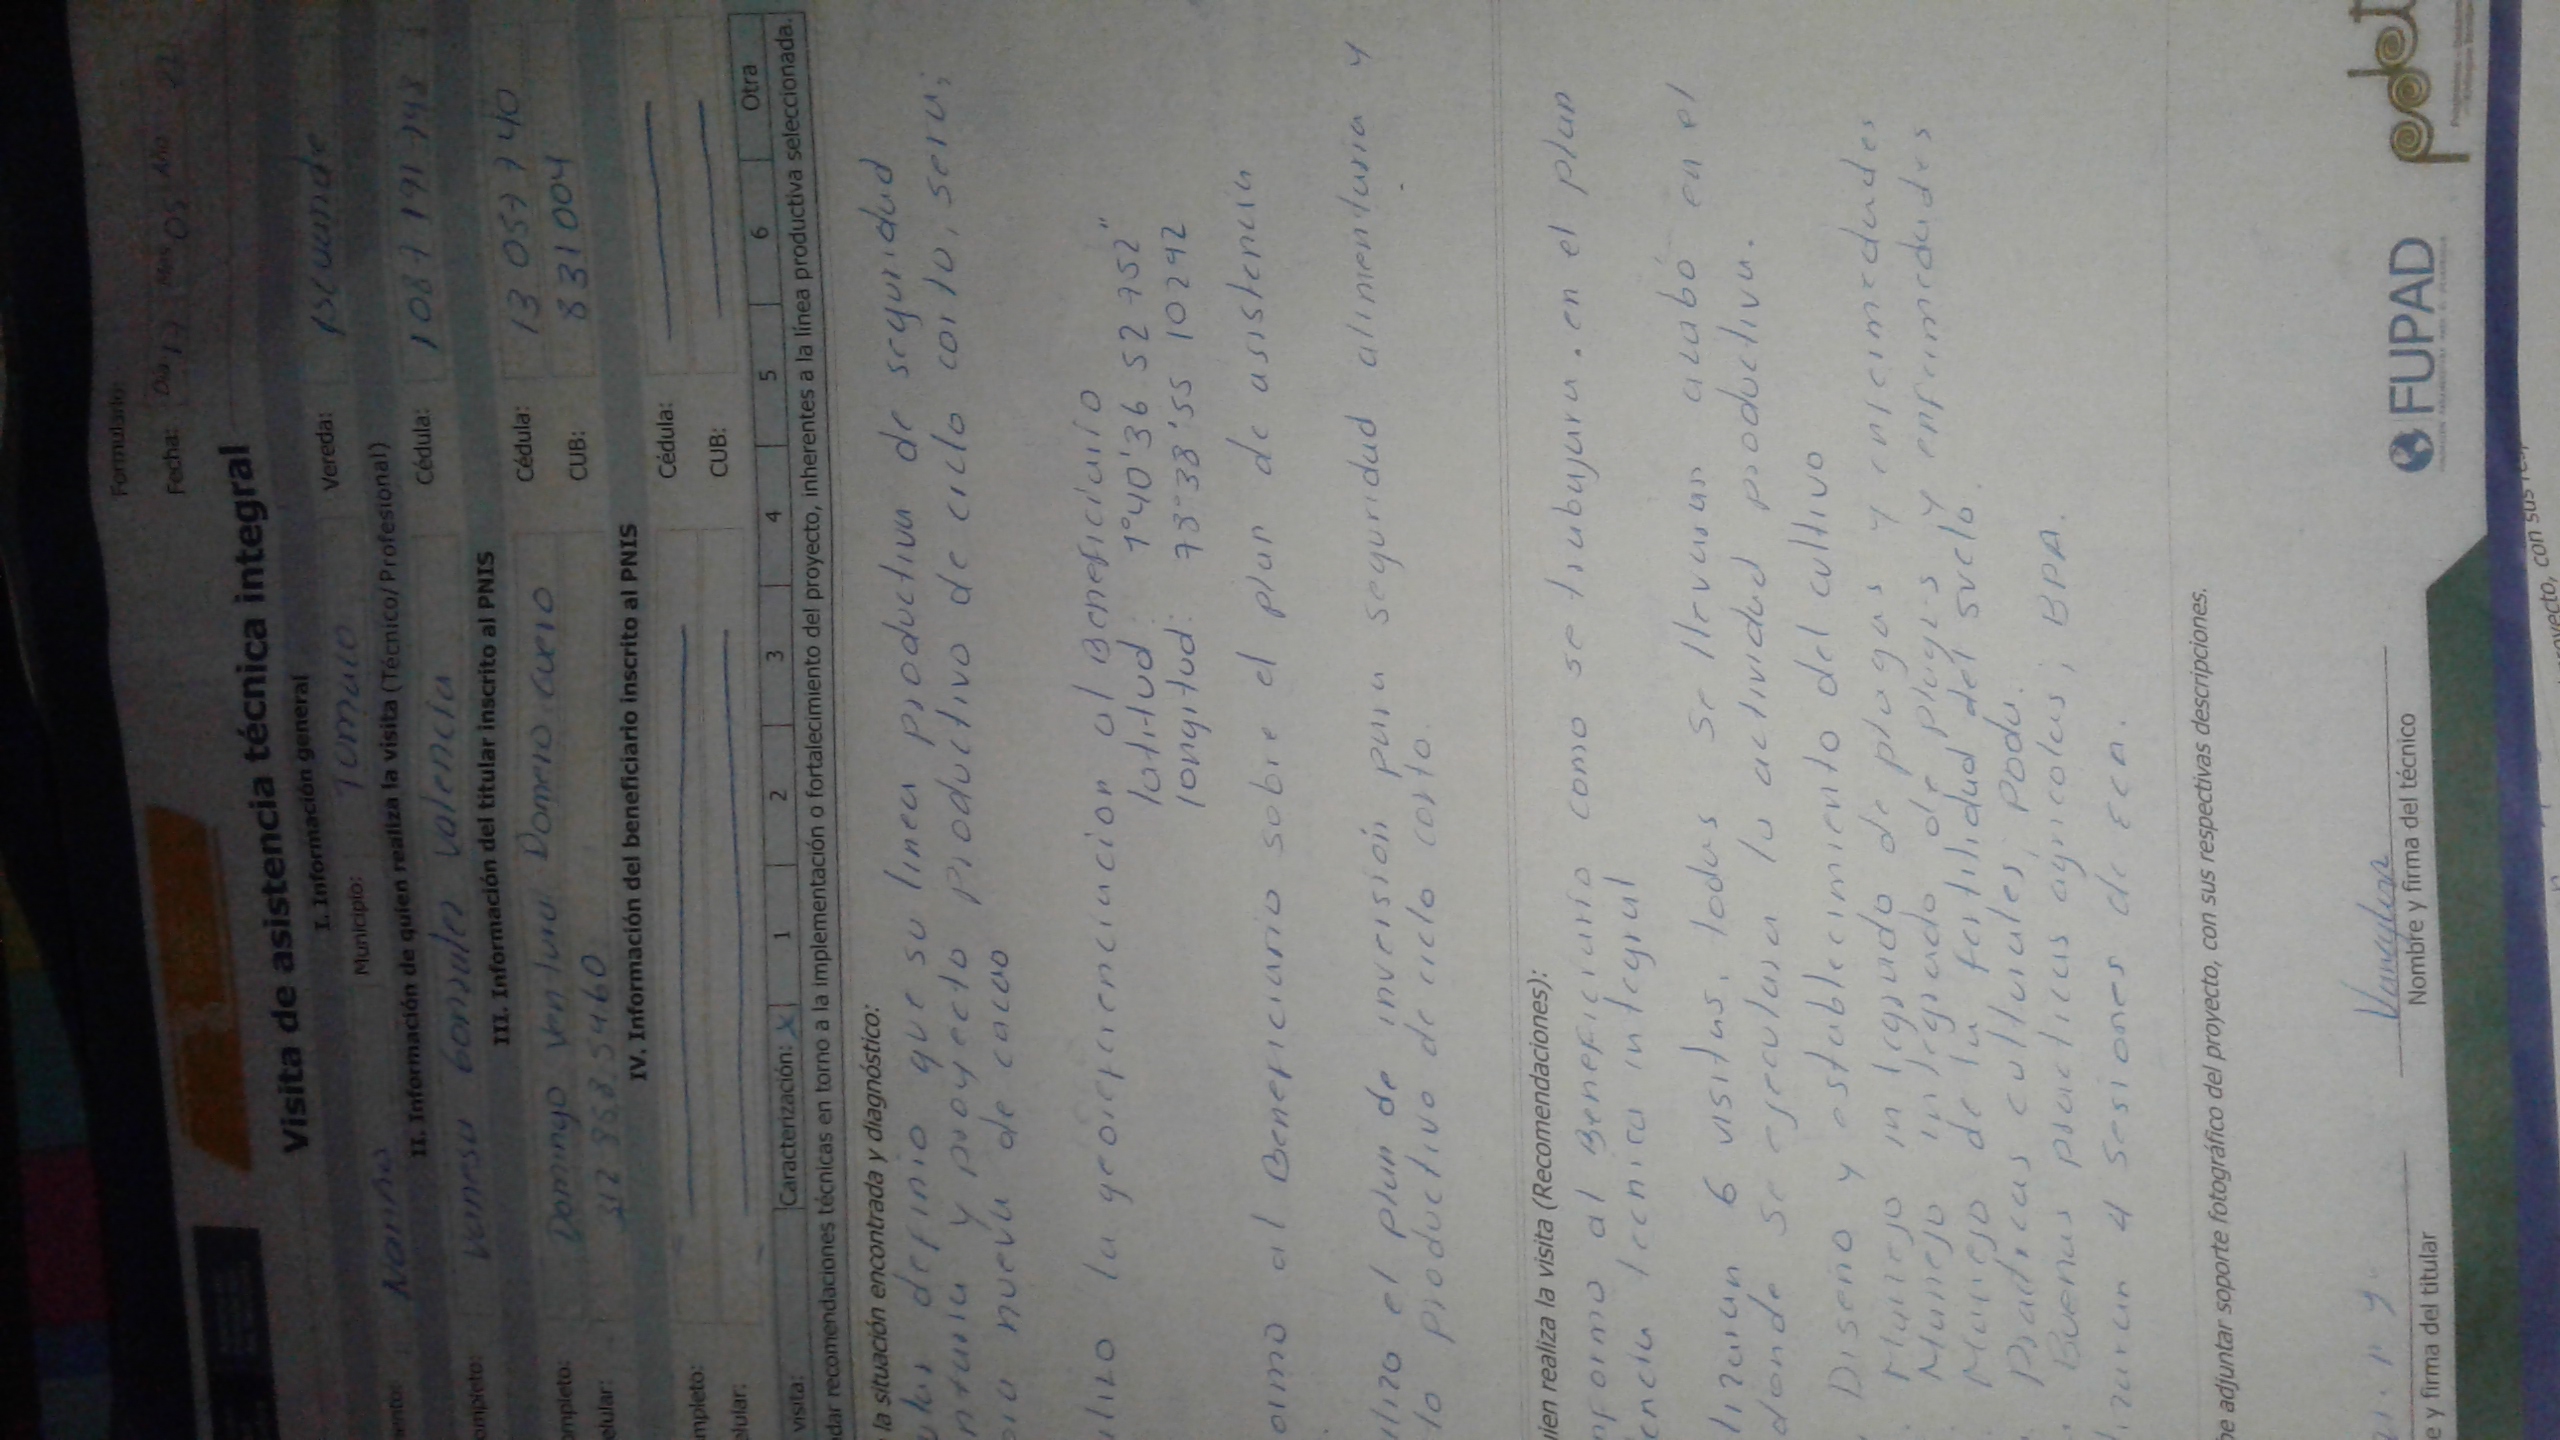 Formulario:
Fecha: Día 17 Mes 05 Año
Visita de asistencia técnica integral
I. Información general
Nariño Municipio: Tumaco Vereda: Pscuande
II. Información de quien realiza la visita (Técnico/ Profesional)
ompleto: Vanesa Gonzales Valencia Cédula: 1087 191 748
III. Información del titular inscrito al PNIS
ompleto: Domingo Ventura Domero Cuero Cédula: 13 057 740
elular: 312 858 5460 CUB: 831004
IV. Información del beneficiario inscrito al PNIS
mpleto: Cédula:
elular: CUB:
visita: Caracterización: X 1 2 3 4 5 6 Otra
dar recomendaciones técnicas en torno a la implementación o fortalecimiento del proyecto, inherentes a la línea productiva seleccionada.
la situación encontrada y diagnóstico:
ular definio que su linea productiva de seguridad
ntaria y proyecto productivo de ciclo corto, sera;
nueva de cacao
alizo la georeferenciacion al Beneficiario
latitud: 1°40'36 52752"
longitud: 78°38'55 10242
ormo al Beneficiario sobre el plan de asistencia
alizo el plan de inversión para seguridad alimentaria y
to productivo de ciclo corto.
uien realiza la visita (Recomendaciones):
nformo al Beneficiario como se trabajara. en el plan
encia tecnica integral
lizaran 6 visitas, todas se llevaran acabó en el
donde se ejecutara la actividad productiva.
Diseño y establecimiento del cultivo
Manejo integrado de plagas y enfermedades
Manejo integrado de plagas y enfermedades
Manejo de la fertilidad del suelo.
Practicas culturales; Poda.
Buenas practicas agricolas; BPA.
lizaran 4 sesiones de Eca.
be adjuntar soporte fotográfico del proyecto, con sus respectivas descripciones.
e y firma del titular Nombre y firma del técnico
FUPAD pdet
royecto, con sus